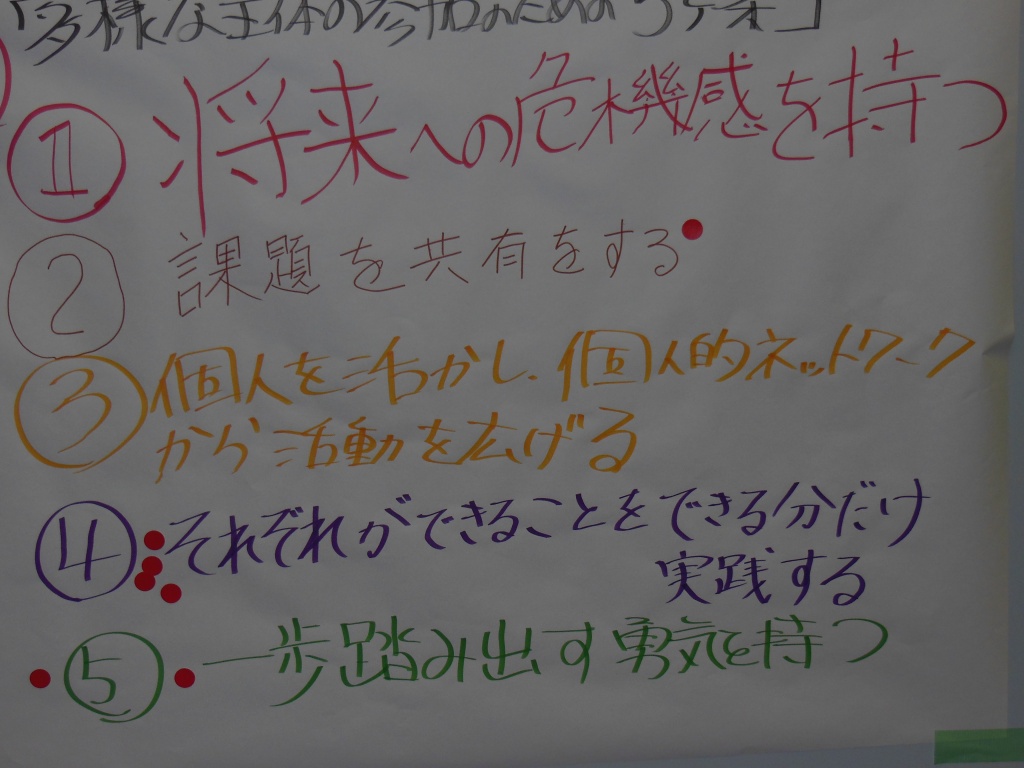 「多様な主体の参加のための5ヶ条」
① 将来への危機感を持つ
② 課題を共有をする
③ 個人を活かし、個人的ネットワーク
から活動を広げる
④ それぞれができることをできる分だけ
実践する
⑤ 一歩踏み出す勇気を持つ